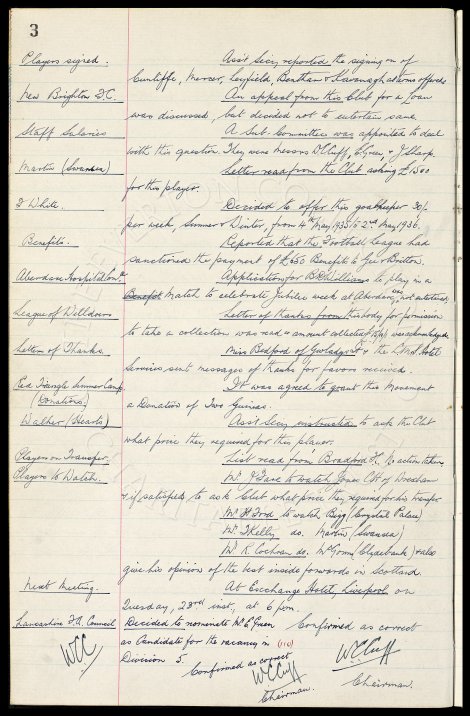 3
Players signed. Ass't Secy reported the signing of
Cunliffe, Mercer, Leyfield, Bentham & Kavanagh at terms offered
New Brighton F.C. An appeal from this Club for a loan
was discussed, but decided not to entertain same.
Staff Salaries A Sub-Committee was appointed to deal
with this question. They were Messrs W.C. Cuff, E. Green, & J. Sharp.
Martin (Swansea) Letter read from the Club asking £1500
for this player.
J White. Decided to offer this goalkeeper 30/-
per week, Summer & Winter, from 4th May, 1935 to 2nd May, 1936.
Benefits. Reported that the Football League had
sanctioned the payment of £650 Benefit to Geo. Britton.
Aberdare Hospital Application for B.D. Williams to play in a
Benefit Match to celebrate Jubilee week at Aberdare, was not entertained.
League of Welldoers Letter of thanks from this body for permission
to take a collection was read & amount collected acknowledged.
Letters of Thanks. Miss Bedford of Gwladys St. & the L.M.S. Hotel
Services sent messages of thanks for favors received.
Red Triangle Summer Camp It was agreed to grant this Movement
(Donations) a Donation of Two Guineas.
Walker (Hearts) Ass't Secy instructed to ask the Club
what price they required for this player.
Players on Transfer. List read from Bradford F.C. No action taken
Players to Watch. Mr. to watch Jones C.H. of Wrexham
& if satisfied to ask Club what price they required for his transfer
Mr. H Ford to watch Bigg (Crystal Palace)
Mr. T Kelly do. Martin (Swansea)
Mr. R. Cochran do. (Clydebank) & also
give his opinion of the best inside forwards in Scotland.
Next Meeting. At Exchange Hotel, Liverpool on
Tuesday, 23rd inst, at 6 p.m.
Lancashire F.A. Council Decided to nominate Mr. E Green Confirmed as correct
as Candidate for the vacancy in (110)
Division 5.
WCC
Confirmed as correct
WC Cuff
Chairman.
WC Cuff
Chairman.